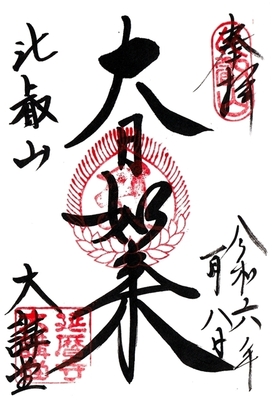 奉拝
令和六年
一月八日
大日如来
比叡山
大講堂
延暦寺